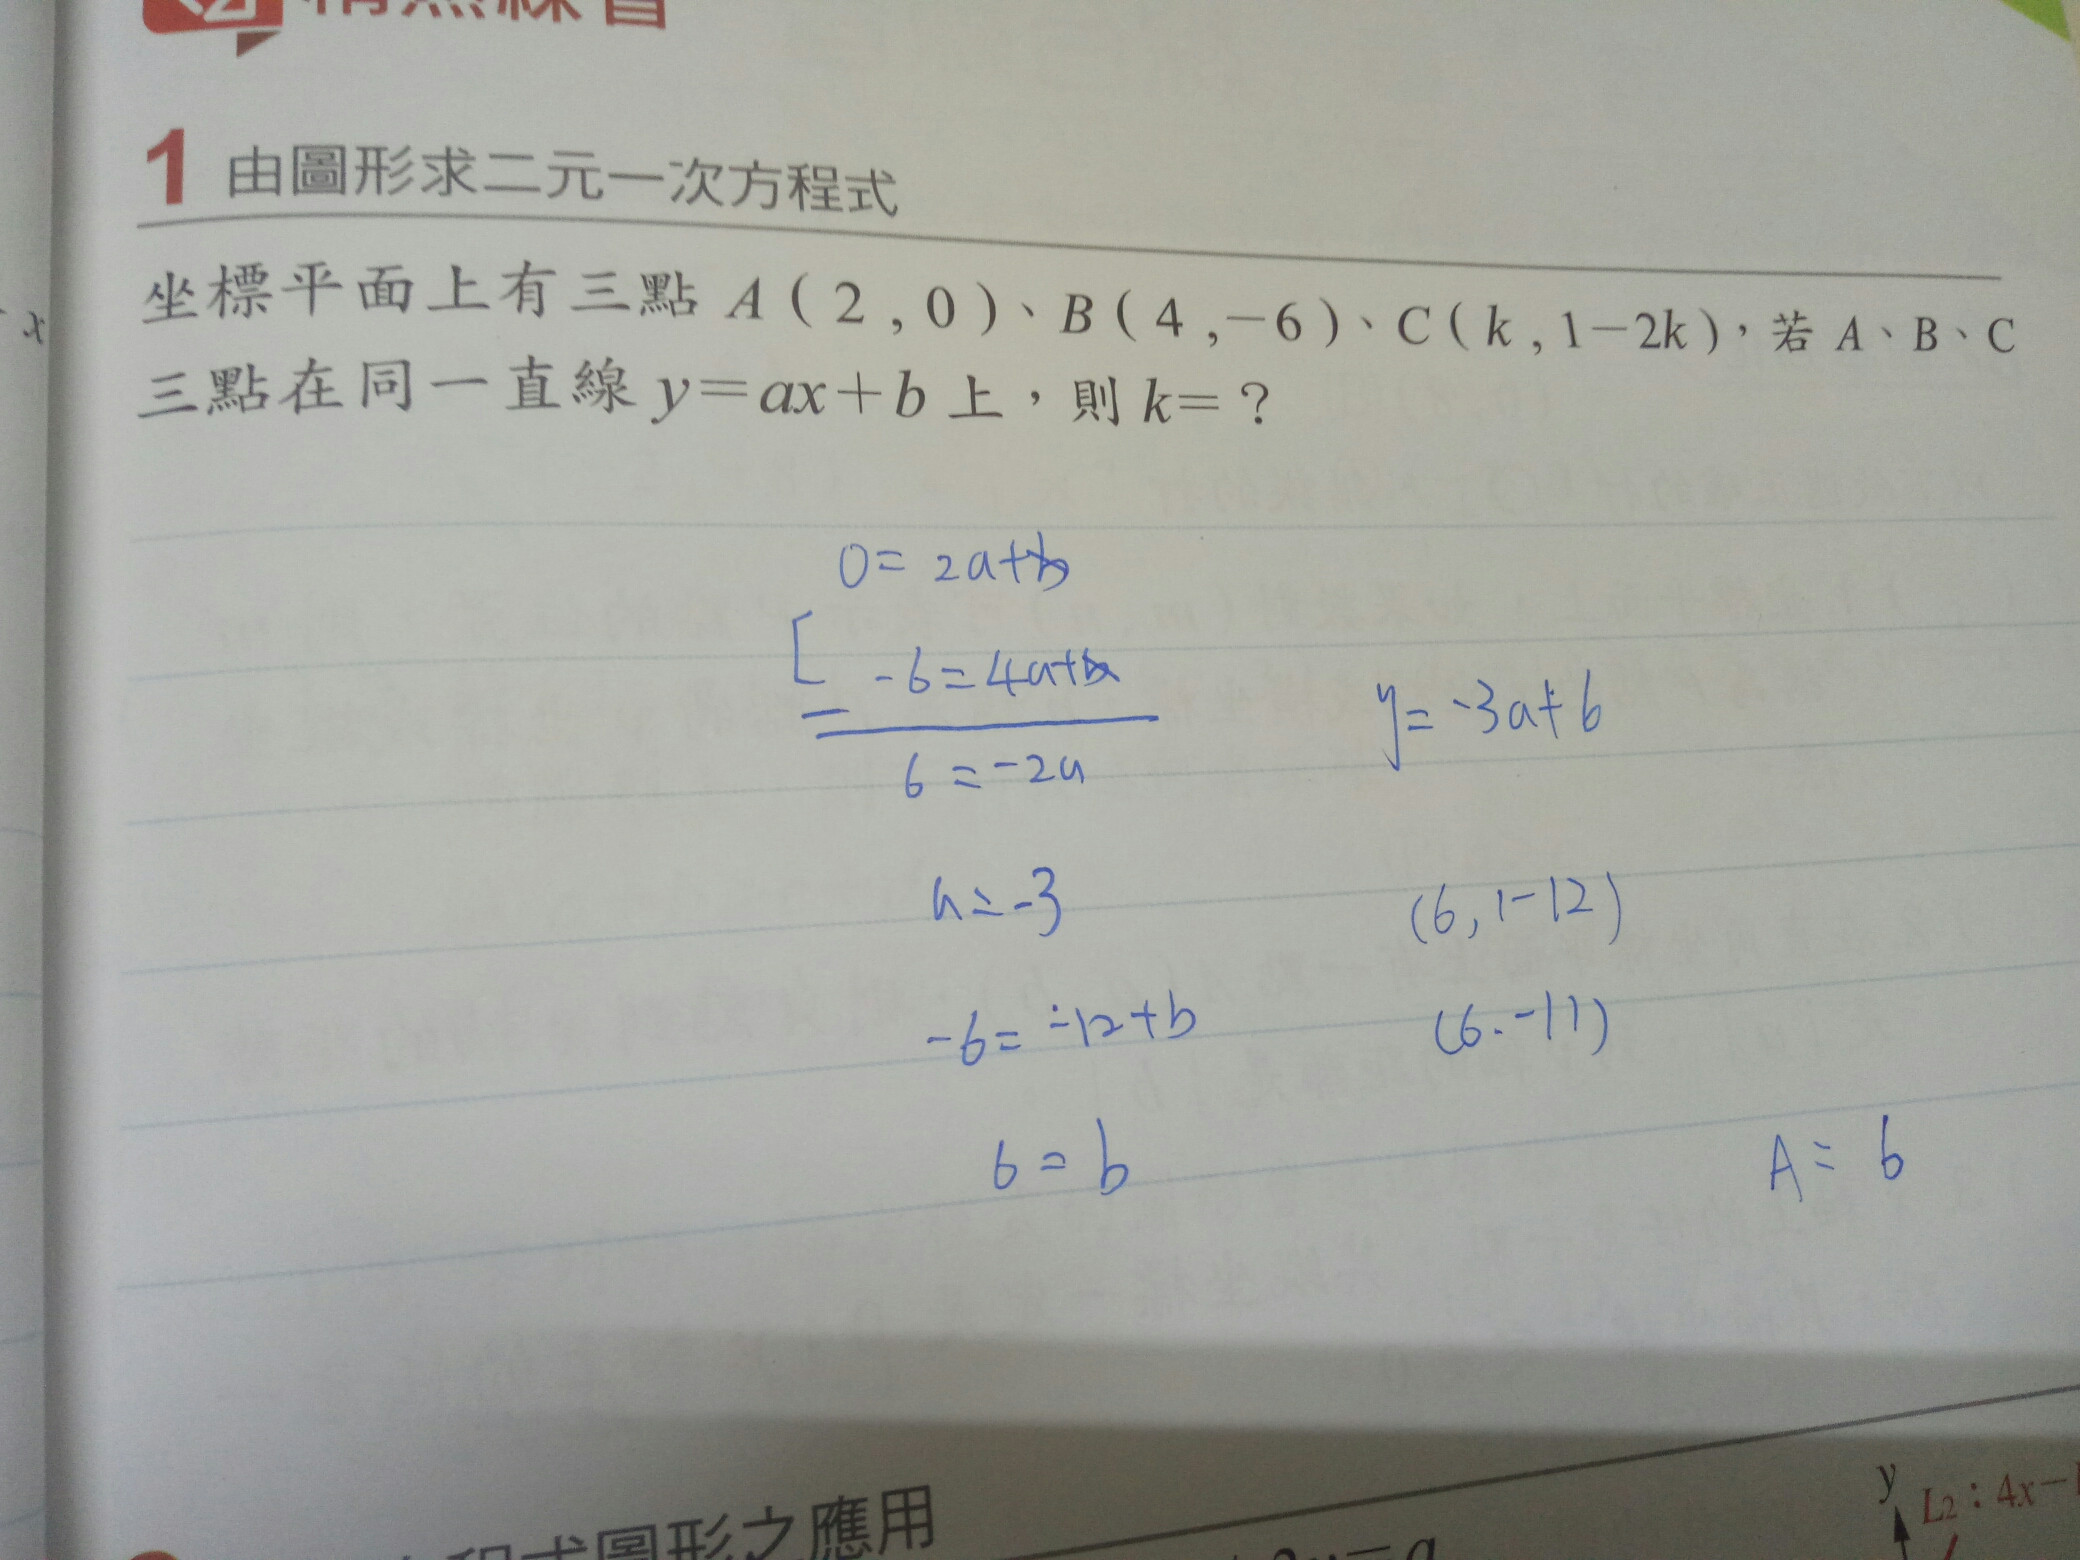 精熟練習
1 由圖形求二元一次方程式
坐標平面上有三點 A(2,0)、B(4,-6)、C(k,1-2k),若 A、B、C
三點在同一直線 y=ax+b 上,則 k=?
x
0= 2a+b
-6=4a+b
6=-2a
a=-3
-6=-12+b
6=b
y=-3a+6
(6,1-12)
(6.-11)
A=6
程式圖形之應用
y
L2:4x-